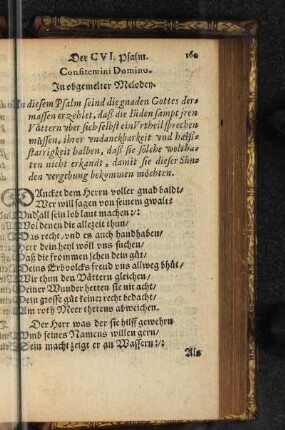 Der CVI. Psalm. 160
Confitemini Domino.
In obgemelter Melodey.
In diesem Psalm seind die gnaden Gottes der-
massen erzehlet, daß die Jüden sampt jren
Vättern vber sich selbst ein Vrtheil sprechen
müssen, ihrer vndanckbarkeit vnd halß-
starrigkeit halben, daß sie solche woltha-
ten nicht erkandt, damit sie dieser Sün-
den vergebung bekommen möchten.
DAncket dem Herrn voller gnad baldt/
Wer will sagen von seinem gwalt?
Vnd all sein lob laut machen:/:
Wol denen die allezeit thun/
Das recht/ vnd es auch handhaben/
Herr dein heyl wöll vns suchen/
Daß die frommen sehen dein güt/
Deins Erbvolcks freud vns allweg bhüt/
Wir thun den Vättern gleichen/
Deiner Wunder hetten sie nit acht/
Dein grosse güt keiner recht bedacht/
Am roth Meer thetens abweichen.
Der Herr was der sie hilff gewehrn
Vmb seines Namens willen gern/
Sein macht zeigt er an Wassern:/:
Als